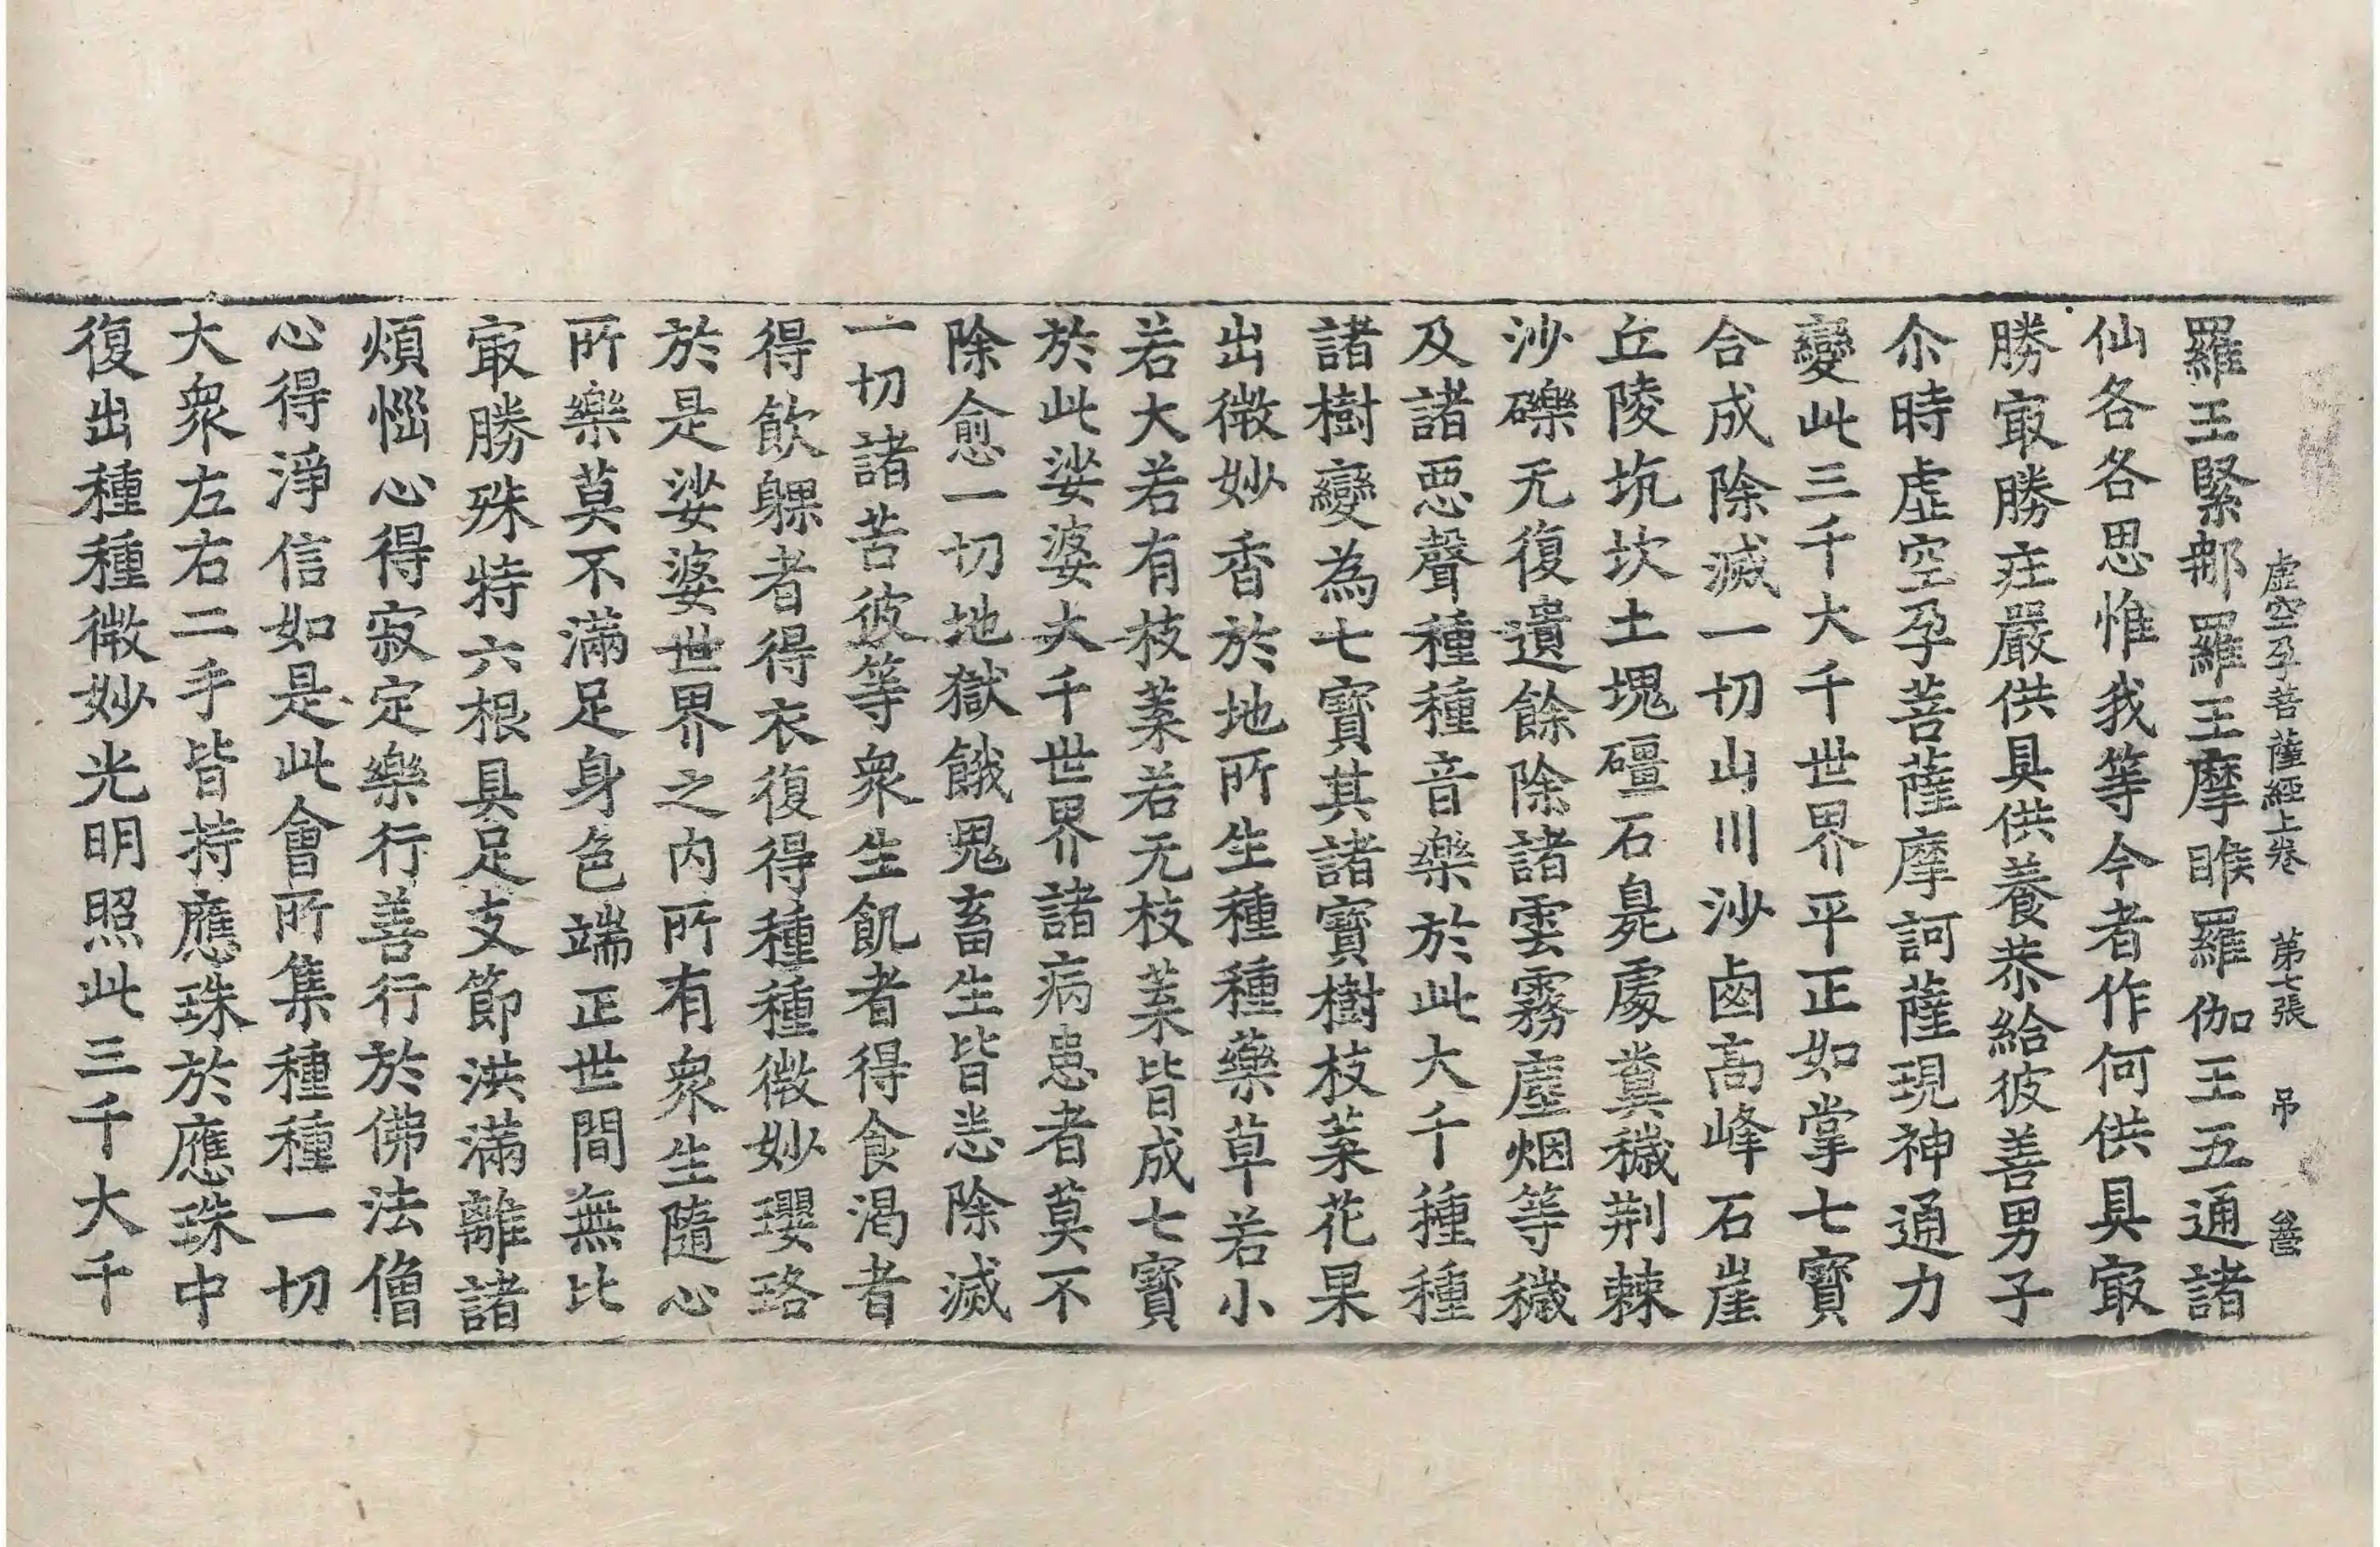 虛空孕菩薩經上卷 第七張 吊
羅王緊那羅王摩睺羅伽王五通諸
仙各各思惟我等今者作何供具㝡
勝㝡勝庄嚴供具供養恭給彼善男子
尒時虛空孕菩薩摩訶薩現神通力
變此三千大千世界平正如掌七寶
合成除滅一切山川沙鹵高峰石崖
丘陵坑坎土塊礓石㲋處糞穢荆棘
沙礫无復遺餘除諸雲霧塵烟等穢
及諸惡聲種種音樂於此大千種種
諸樹變為七寶其諸寶樹枝葉花果
出微妙香於地所生種種藥草若小
若大若有枝葉若无枝葉皆成七寶
於此娑婆大千世界諸病患者莫不
除愈一切地獄餓鬼畜生皆悉除滅
一切諸苦彼等衆生飢者得食渴者
得飲躶者得衣復得種種微妙瓔珞
於是娑婆世界之内所有衆生隨心
所樂莫不滿足身色端正世間無比
㝡勝殊特六根具足支節洪滿離諸
煩惱心得寂定樂行善行於佛法僧
心得淨信如是此會所集種種一切
大衆左右二手皆持應珠於應珠中
復出種種微妙光明照此三千大千